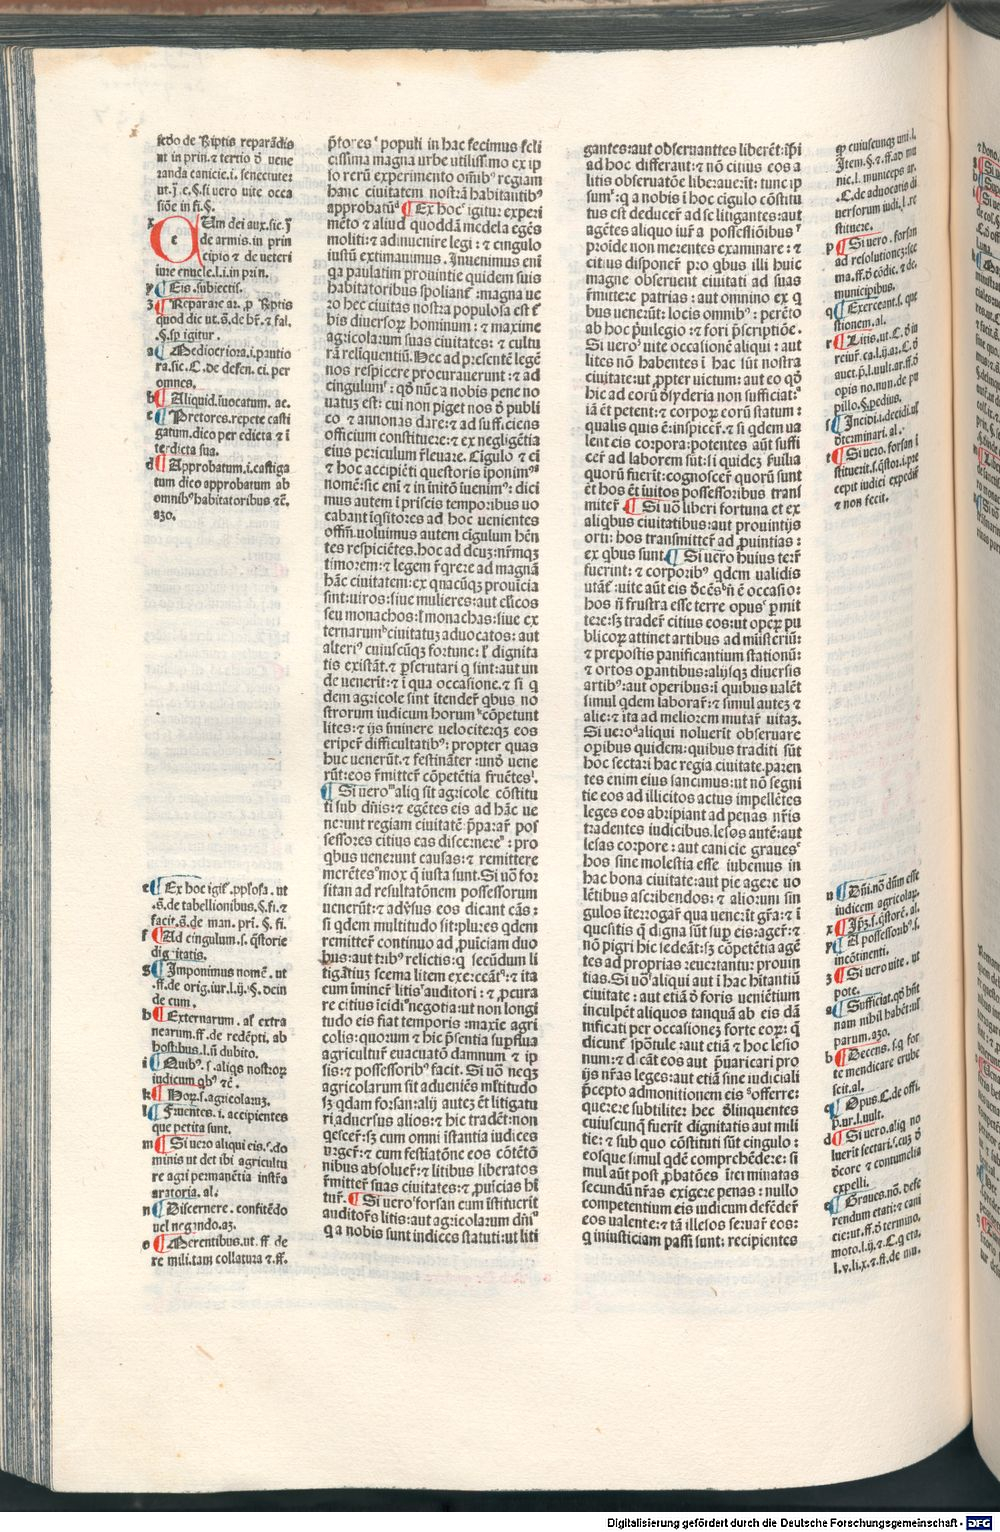 ſcdo de Riptis reparādis
ut in prin. ⁊ tertio d̄ uene
randa canicie. i. ſenectute:
ut. j̄. e. §. ſi uero uite occa
ſiōe in fi. §.
x CUm dei aux. ſic. j̄
de armis. in prin
cipio ⁊ de ueteri
iure enucle. l. i. in prin.
y Eis. ſubiectis.
z Reparare
quod dic ut. s̄. de
§. igitur.
a Mediocriora. i. pautio
ra. ſic. C. de defen. ci. per
omnes.
b Aliquid. iuocatum. ac.
c Pretores. repete caſti
gatum. dico per edicta ⁊ ī
terdicta ſua.
d Approbatum. i. caſtiga
tum dico approbatum ab
omnibꝰ habitatoribus ⁊c̄.
azo.
e Ex hoc igit̄. ut
.s̄. de tabellionibus. §. fi. ⁊
facit. s̄. de man. pri. §. fi.
f Ad cingulum. ſ. q̄ſtorie
dignitatis.
g Imponimus nomē. ut
.ff. de orig. iur. l. ij. §. dein
de cum.
h Externarum. al' extra
nearum. ff. de redēpti. ab
hoſtibus. l. ii dubito.
i Quibꝰ. ſ. aliqs noſtroꝝ
iudicum qbꝰ ⁊c̄.
k Hoꝝ. ſ. agricolarum.
l Fruentes. i. accipientes
que petita ſunt.
m Si uero aliqui eis. ſ. do
minis ut det ibi agricultu
re agri permanētia inſtr̄a
aratoria. al.
n Diſcernere. confitēdo
uel negando. az.
o Merentibus. ut. ff de
re mili. tam collatura ⁊. ff.
p̄tores populi in hac fecimus feli
ciſſima magna urbe utiliſſimo ex ip
ſo rerū experimento oīnibꝰ regiam
hanc ciuitatem noſtrā habitantibꝰ
approbatū ¶ Ex hoc igitur experi
mēto ⁊ aliud quoddā medela egēs
moliti: ⁊ adinuenire legi: ⁊ cingulo
iuſtū extimauimus. Inuenimus enī
qa paulatim prouintie quidem ſuis
habitatoribus ſpoliant̄: magna ue
ro hec ciuitas noſtra populoſa eſt t̄
bis diuerſoꝝ hominum: ⁊ maxime
agricolarum ſuas ciuitates: ⁊ cultu
rā relinquentiū. Hec ad preſentē legē
nos reſpicere procurauerunt: ⁊ ad
cingulum: qd̄ nūc a nobis pene no
uatuꝫ eſt: cui non piget nos d̄ publi
co ⁊ annonas dare: ⁊ ad ſufficiens
officium conſtituere: ⁊ ex negligētia
eius periculum ꝓleuare. Cīgulo ⁊ ei
⁊ hoc accipiēti queſtoris īponimꝰ
nomē: ſic enī ⁊ in initō iuenimꝰ: dici
mus autem ī priſcis temporibus uo
cabant īqſitores ad hoc uenientes
offm̄. uolumus autem cigulum hēn
tes reſpiciētes. hoc ad deuꝫ: nr̄mqꝫ
timorem: ⁊ legem ad magnā
hāc ciuitatem: ex quacūqꝫ prouīcia
ſint: uiros: ſiue mulieres: aut cl̄icos
ſeu monachos: ł monachas: ſiue ex
ternarum ciuitatuꝫ aduocatos: aut
alteriꝰ cuiuſcūqꝫ fortune: ł dignita
tis exiſtāt. ⁊ ꝑſcrutari q ſint: aut un
de uenerīt: ⁊ ī qua occaſione. ⁊ ſi q
dem agricole ſint ītender̄ qbus no
ſtrorum iudicum horum cōpetunt
lites: ⁊ ijs īminere uelociterqꝫ eos
eriper̄ difficultatibꝰ: propter quas
huc uenerūt. ⁊ feſtināter: und̄ uene
rūt: eos r̄mitter̄ cōpetētia fruētes.
¶ Si uero aliq ſit agricole cōſtitu
ti ſub dn̄is: ⁊ egētes eis ad hāc ue
nerunt regiam ciuitatē: p̄parar̄ poſ
ſeſſores citius eas diſcernere: pro
qbus uenerunt cauſas: ⁊ remittere
merētes mox q iuſta ſunt. Si uō for
ſitan ad reſultatōnem poſſeſſorum
uenerūt: ⁊ adv̄ſus eos dicant cās:
ſi qdem multitudo ſit: plures qdem
remitter̄ continuo ad ꝓuīciam duo
bus: aut tribꝰ relictis: q ſecūdum li
tigātiuꝫ ſcema litem exercēāt: ⁊ ita
eum īminer̄ litis auditori: ⁊ ꝓcura
re citius īcidi negotia: ut non longi
tudo eis fiat temporis: maxīe agri
colis: quorum ⁊ hic p̄ſentia ſuꝑflua
agricultur̄ euacuatō damnum ⁊ ip
ſis: ⁊ poſſeſſoribꝰ facit. Si uō neqꝫ
agricolarum ſit adueniēs multitudo
ſꝫ qdam forſan: alij autez ēt litigatu
ri aduerſus alios: ⁊ hic tradēt: non
qeſcer̄: ſꝫ cum omni īſtantia iudices
urger̄: ⁊ cum feſtiatōne eos cōtētō
nibus abſoluer̄: ⁊ litibus liberatos
r̄mitter̄ ſuas ciuitates: ⁊ ꝓuīcias hī
tur̄. ¶ Si uero forſan eum īſtituerīt
auditor̄s litis: aut agricolarum dn̄i
q a nobis ſunt iudices ſtatuti: ut liti
gantes: aut obſeruanttes liberēt: īp̄i
ad hoc differant: ⁊ nō citius eos a
litis obſeruatōe liberauerīt: tunc ip
ſum: q a nobis ī hoc cīgulo cōſtitu
tus eſt deducer̄ ad ſe litigantes: aut
agētes aliquo iur̄ a poſſeſſiōibus ⁊
proīde non merentes examinare: ⁊
citius diſponer̄ pro qbus illi huic
magne obſeruent ciuitati ad ſuas
r̄mittere patrias: aut omnino ex q
bus uenerūt: locis omnibꝰ: perēto
ab hoc p̄uilegio: ⁊ fori p̄ſcriptiōe.
Si uero uite occaſionē aliqui: aut
lites nō habentes ī hac ſūt noſtra
ciuitate: ut ꝓpter uictum: aut eo qd̄
hic ad eorū d̄ſyderia non ſufficiat:
iā ēt petent: ⁊ corporꝝ eorū ſtatum:
qualis quis ē: inſpicer̄. ⁊ ſi qdem ua
lent eis corpora: potentes aūt ſuffi
cer̄ ad laborem ſūt: ſi quidez ſuilia
quorū fuerīt: cognoſcer̄ quorū ſunt
ēt hos ēt inuitos poſſeſſoribus tranſ
miter̄ ¶ Si uō liberi fortuna et ex
aliqbus ciuitatibus: aut prouintijs
orti: hos tranſmitter̄ ad ꝓuintias:
ex qbus ſunt. ¶ Si uero huius terr̄
fuerint: ⁊ corporibꝰ qdem ualidis
utāt̄: uite aūt eis dēcēs n̄ ē occaſio:
hos n̄ fruſtra eſſe terre opus ꝑmit
tere: ſꝫ trader̄ citius eos: ut operꝝ pu
blicoꝝ attinet artibus ad miſteriū:
⁊ prepoſtis panificantium ſtationū:
⁊ ortos opantibus: alijſqꝫ diuerſis
artibꝰ: aut operibus: ī quibus ualēt
ſimul qdem laborar̄: ⁊ ſimul autez ⁊
alie: ⁊ ita ad meliorem mutar̄ uitaꝫ.
Si uero aliqui noluerīt obſeruare
opibus quidem: quibus traditi ſūt
hoc ſectari: hac regia ciuitate. paren
tes enim eius ſancimus: ut nō ſegni
tie eos ad illicitos actus impellētes
leges eos abripiant ad penas nr̄is
tradentes iudicibus. leſos autē: aut
leſas corpore: aut canicie graues
hos ſine moleſtia eſſe iubemus in
hac bona ciuitate: aut pie agere uo
lētibus aſcribendos: ⁊ aliorum ſin
gulos īterrogar̄ qua uenerīt gr̄a: ⁊ ī
queſitis q digna ſūt ſuꝑ eis: ager̄: ⁊
nō pigri hic ſedeāt: ſꝫ cōpetētia agē
tes ad proprias reuertantur prouin
tias. Si uō aliqui aut ī hac hītantiū
ciuitate: aut etiā d̄ foris ueniētium
inculpēt aliquos tanquā ab eis dā
nificati per occaſionez forte eoꝝ: q
dicunt̄ ſpōtule: aut etiā ⁊ hoc leſio
num: ⁊ dicāt eos aut p̄uaricari pro
ijs nr̄as leges: aut etiā ſine iudiciali
p̄cepto admonitionem eis offerre:
querere ſubtiliter: hec d̄linquentes
cuiuſcunqꝫ fuerīt dignitatis aut mili
tie: ⁊ ſub quo cōſtituti ſūt cingulo:
eoſque ſimul qdē comprehēdere: ſi
mul aūt poſt ꝓbatōes ītermiātas
ſecundū nr̄as exigere penas: nullo
competentium eis iudicum defēder̄
eos ualente: ⁊ tā illeſos ſeruar̄ eos:
q iniuſticiam paſſi ſunt: recipientes
qꝫ cuiuſcunqꝫ uni. l.
Item. §. ⁊. ff. ad mu
nic. l. municeps ar.
.C. de aduocatis di
uerſorum iudi. l. re
ſtituere.
p Si uero. forſan
ad reſolutionez: ſec
ma. ff. d̄ cōdic. ⁊ de.
municipibus.
q Exerceant. ſ. que
ſtionem. al.
r Litis. ut. C. d̄ in
l. ij. ar. C. d̄
auct. p̄. l. ult. ar. ff. d̄
opis no. nun. de pu
pillo. §. pedius.
ſ Incidi. i. decidi. ul'
determinari. al.
t Si uero. forſan ī
ſtituerit. ſ. q̄ſtor. i. pre
cepit iudici expedir̄
⁊ non fecit.
u Dn̄i. nō dn̄m eſſe
iudicem agricolaꝝ.
x Ip̄ꝫ. ſ. q̄ſtorē. al.
y A poſſeſſoribꝰ. ſ.
incōtinenti.
z Si uero uite. ut
pote.
a Sufficiat. qd̄ hn̄t
nam nihil habēt: ul'
parum. azo.
b Decens. ſ. q for
te mendicare erube
ſcit. al.
Opus. C. de offi.
p̄. ur. l. ult.
d Si uero. aliq no
luerit ſectari. ſ. cuꝫ d̄
decore ⁊ contumelia
expelli.
e Graues. nō. defe
rendum etati: ⁊ cani
cie: ut. ff. d̄ termino.
moto. l. ij. ⁊. C. q eta.
l. v. li. x. ⁊. ff. de mu.
Digitalisierung gefördert durch die Deutsche Forschungsgemeinschaft - DFG